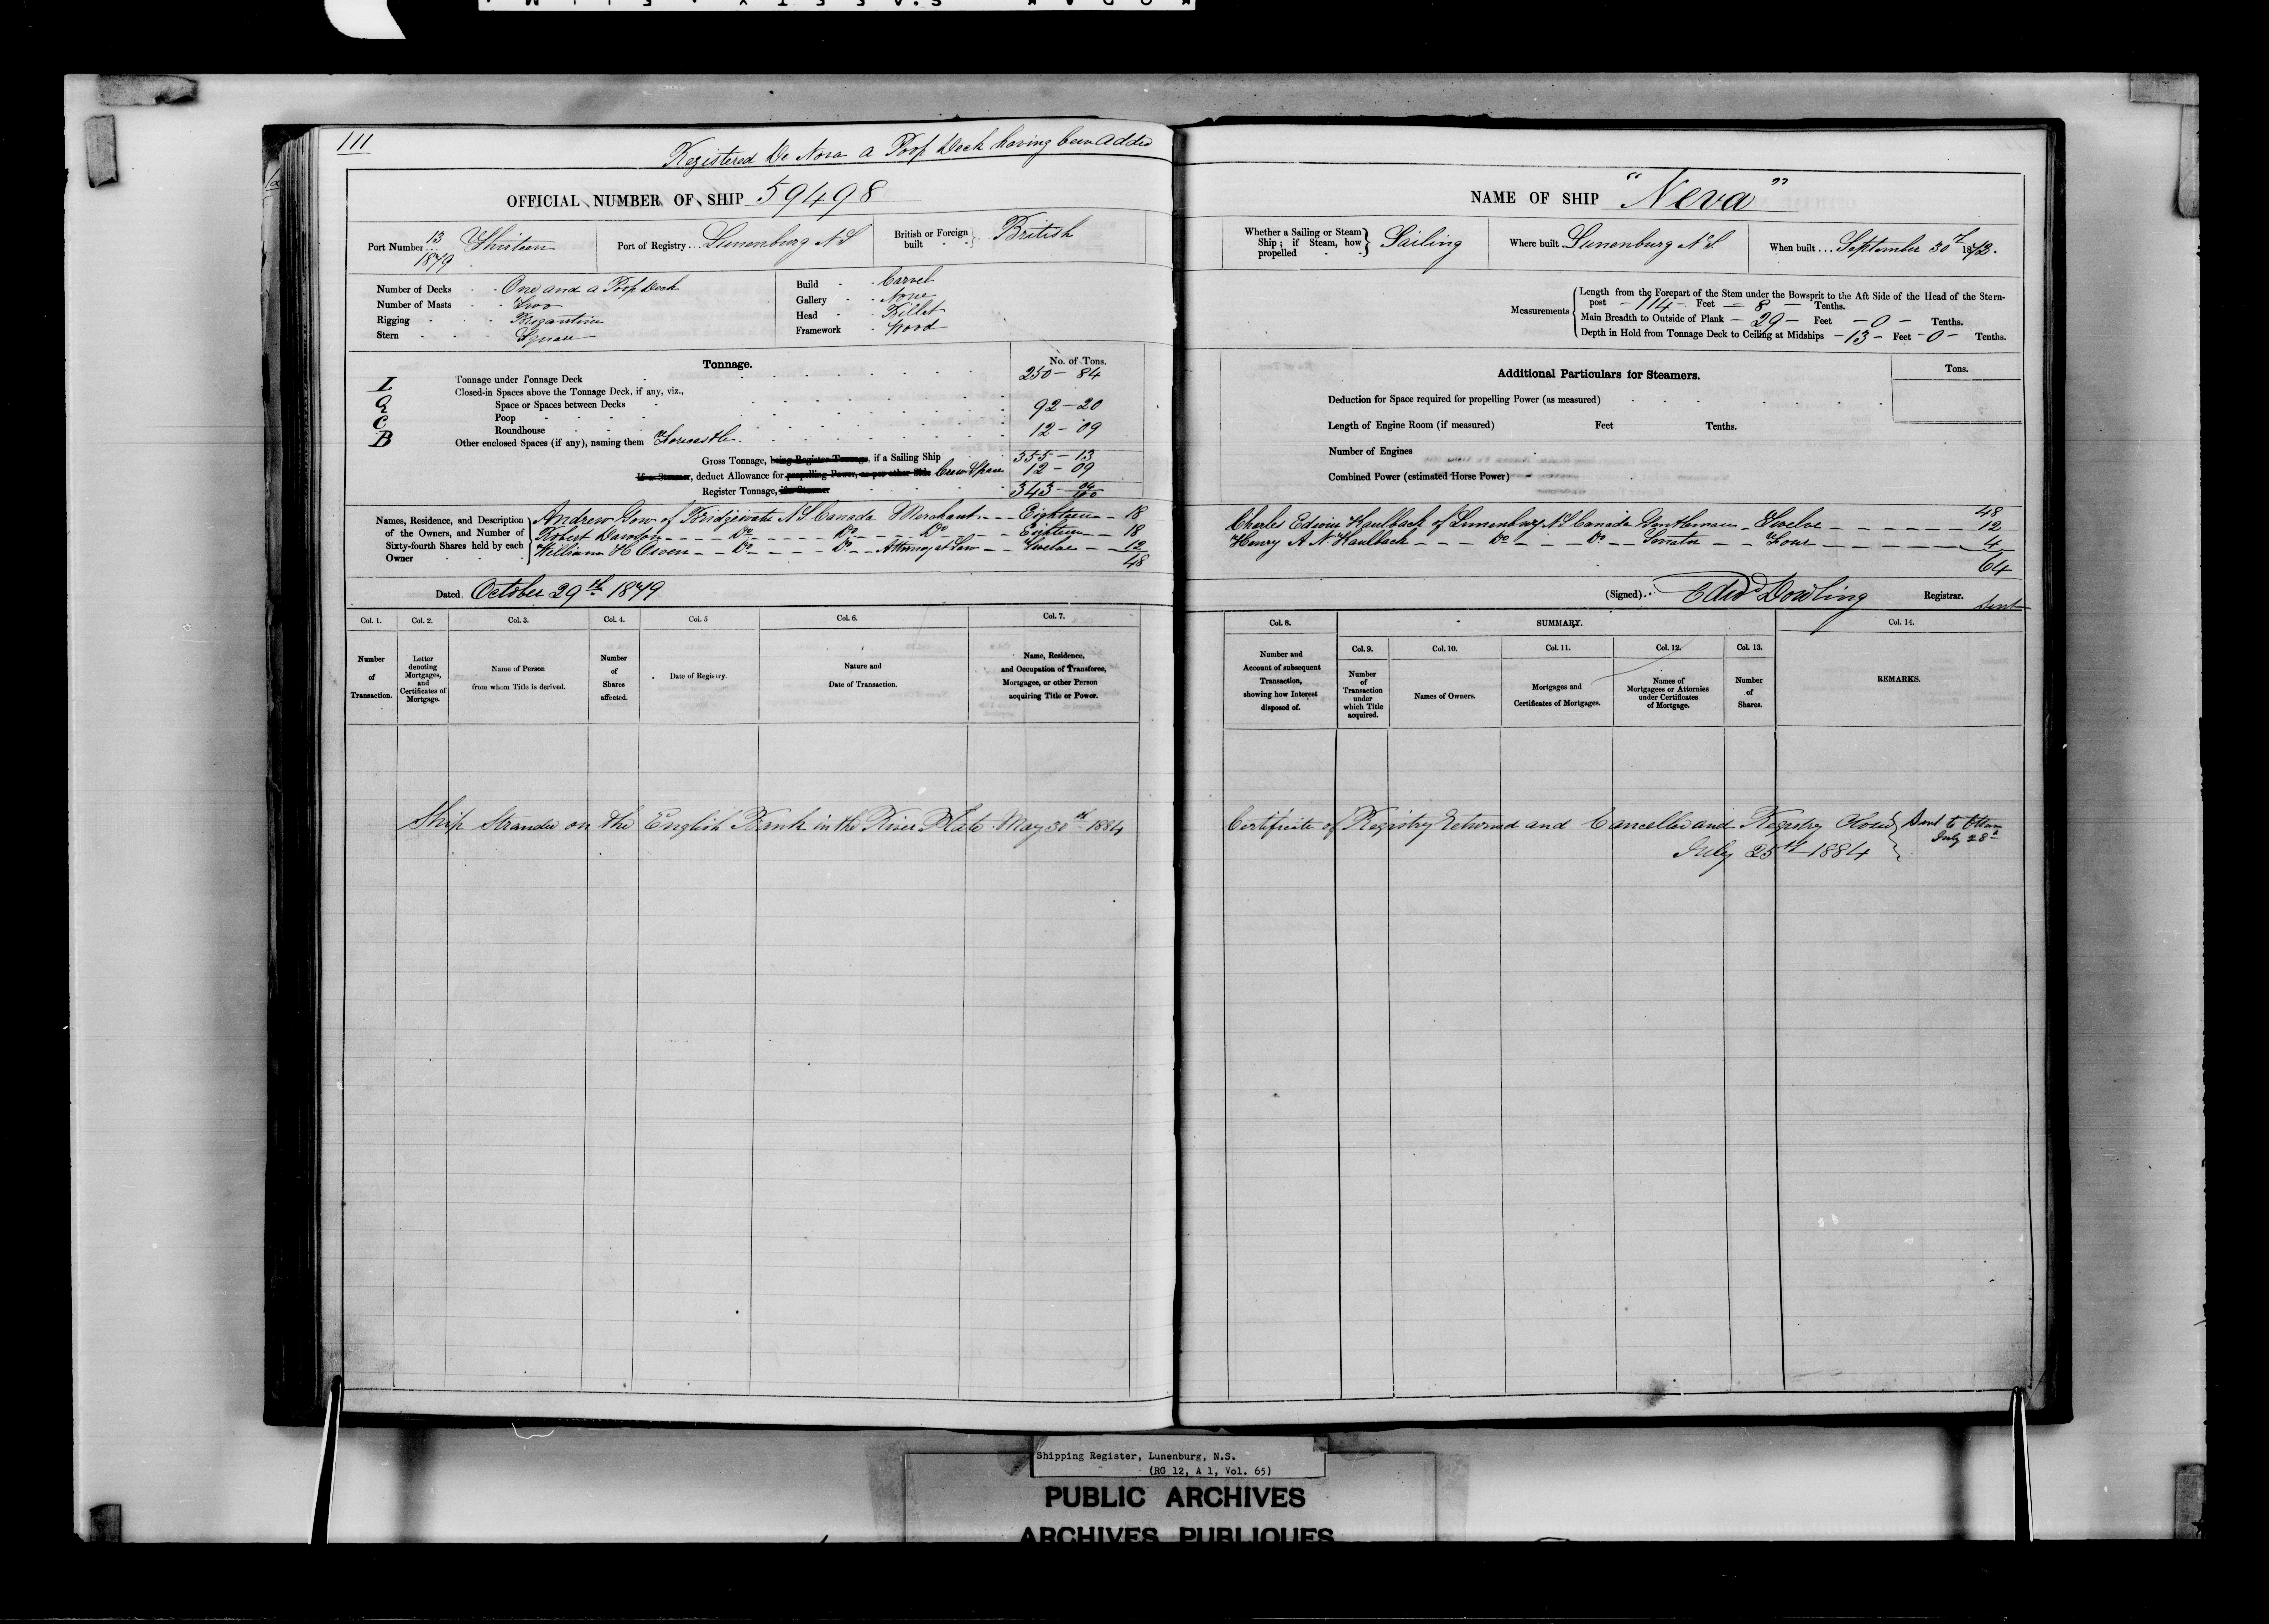 111
Registered De Novo a Poop Deck having been added
OFFICIAL NUMBER OF SHIP 59498
Port Number 13/1879 Thirteen
Port of Registry Lunenburg N S
British or Foreign built British
Number of Decks One and a Poop Deck
Number of Masts Two
Rigging Brigantine
Stern Square
Build Carvel
Gallery None
Head Billet
Framework Wood
Tonnage.
No. of Tons.
Tonnage under Tonnage Deck 250 - 84
Closed-in Spaces above the Tonnage Deck, if any, viz.,
Space or Spaces between Decks
Poop 92 - 20
Roundhouse
Other enclosed Spaces (if any), naming them Forecastle 12 - 09
Gross Tonnage, being Register Tonnage, if a Sailing Ship 355 - 13
If a Steamer, deduct Allowance for propelling Power, as per other Side Crew Space 12 - 09
Register Tonnage, if a Steamer 343 - 04/100
Names, Residence, and Description of the Owners, and Number of Sixty-fourth Shares held by each Owner
Andrew Gow of Bridgewater N.S. Canada Merchant - - Eighteen - 18
Robert Dawson - - Do - - Do - - Do - - Eighteen - 18
William H Owen - - Do - - Do - - Attorney at Law - - Twelve - 12
48
Dated October 29th 1879
Col. 1. Col. 2. Col. 3. Col. 4. Col. 5 Col. 6. Col. 7.
Number of Transaction.
Letter denoting Mortgages, and Certificates of Mortgage.
Name of Person from whom Title is derived.
Number of Shares affected.
Date of Registry.
Nature and Date of Transaction.
Name, Residence, and Occupation of Transferee, Mortgagee, or other Person acquiring Title or Power.
Ship Stranded on the English Bank in the River Plate May 30th 1884
NAME OF SHIP "Neva"
Whether a Sailing or Steam Ship; if Steam, how propelled Sailing
Where built Lunenburg N.S.
When built September 30th 1872.
Measurements
Length from the Forepart of the Stem under the Bowsprit to the Aft Side of the Head of the Stern-
post - 114 - Feet - 8 - Tenths.
Main Breadth to Outside of Plank - 29 - Feet - 0 - Tenths.
Depth in Hold from Tonnage Deck to Ceiling at Midships - 13 - Feet - 0 - Tenths.
Additional Particulars for Steamers.
Tons.
Deduction for Space required for propelling Power (as measured)
Length of Engine Room (if measured) Feet Tenths.
Number of Engines
Combined Power (estimated Horse Power)
48
Charles Edwin Kaulback of Lunenburg N.S. Canada Gentleman - Twelve - 12
Henry A N Kaulback - - Do - - Do - - Senator - - Four - 4
64
(Signed) Edwd Dowling Registrar.
Sent
Col. 8. SUMMARY. Col. 14.
Col. 9. Col. 10. Col. 11. Col. 12. Col. 13.
Number and Account of subsequent Transaction, showing how Interest disposed of.
Number of Transaction under which Title acquired.
Names of Owners.
Mortgages and Certificates of Mortgages.
Names of Mortgagees or Attornies under Certificates of Mortgage.
Number of Shares.
REMARKS.
Certificate of Registry returned and Cancelled and Registry Closed
July 25th 1884
Sent to Ottawa
July 28th
Shipping Register, Lunenburg, N.S.
(RG 12, A 1, Vol. 65)
PUBLIC ARCHIVES
ARCHIVES PUBLIQUES